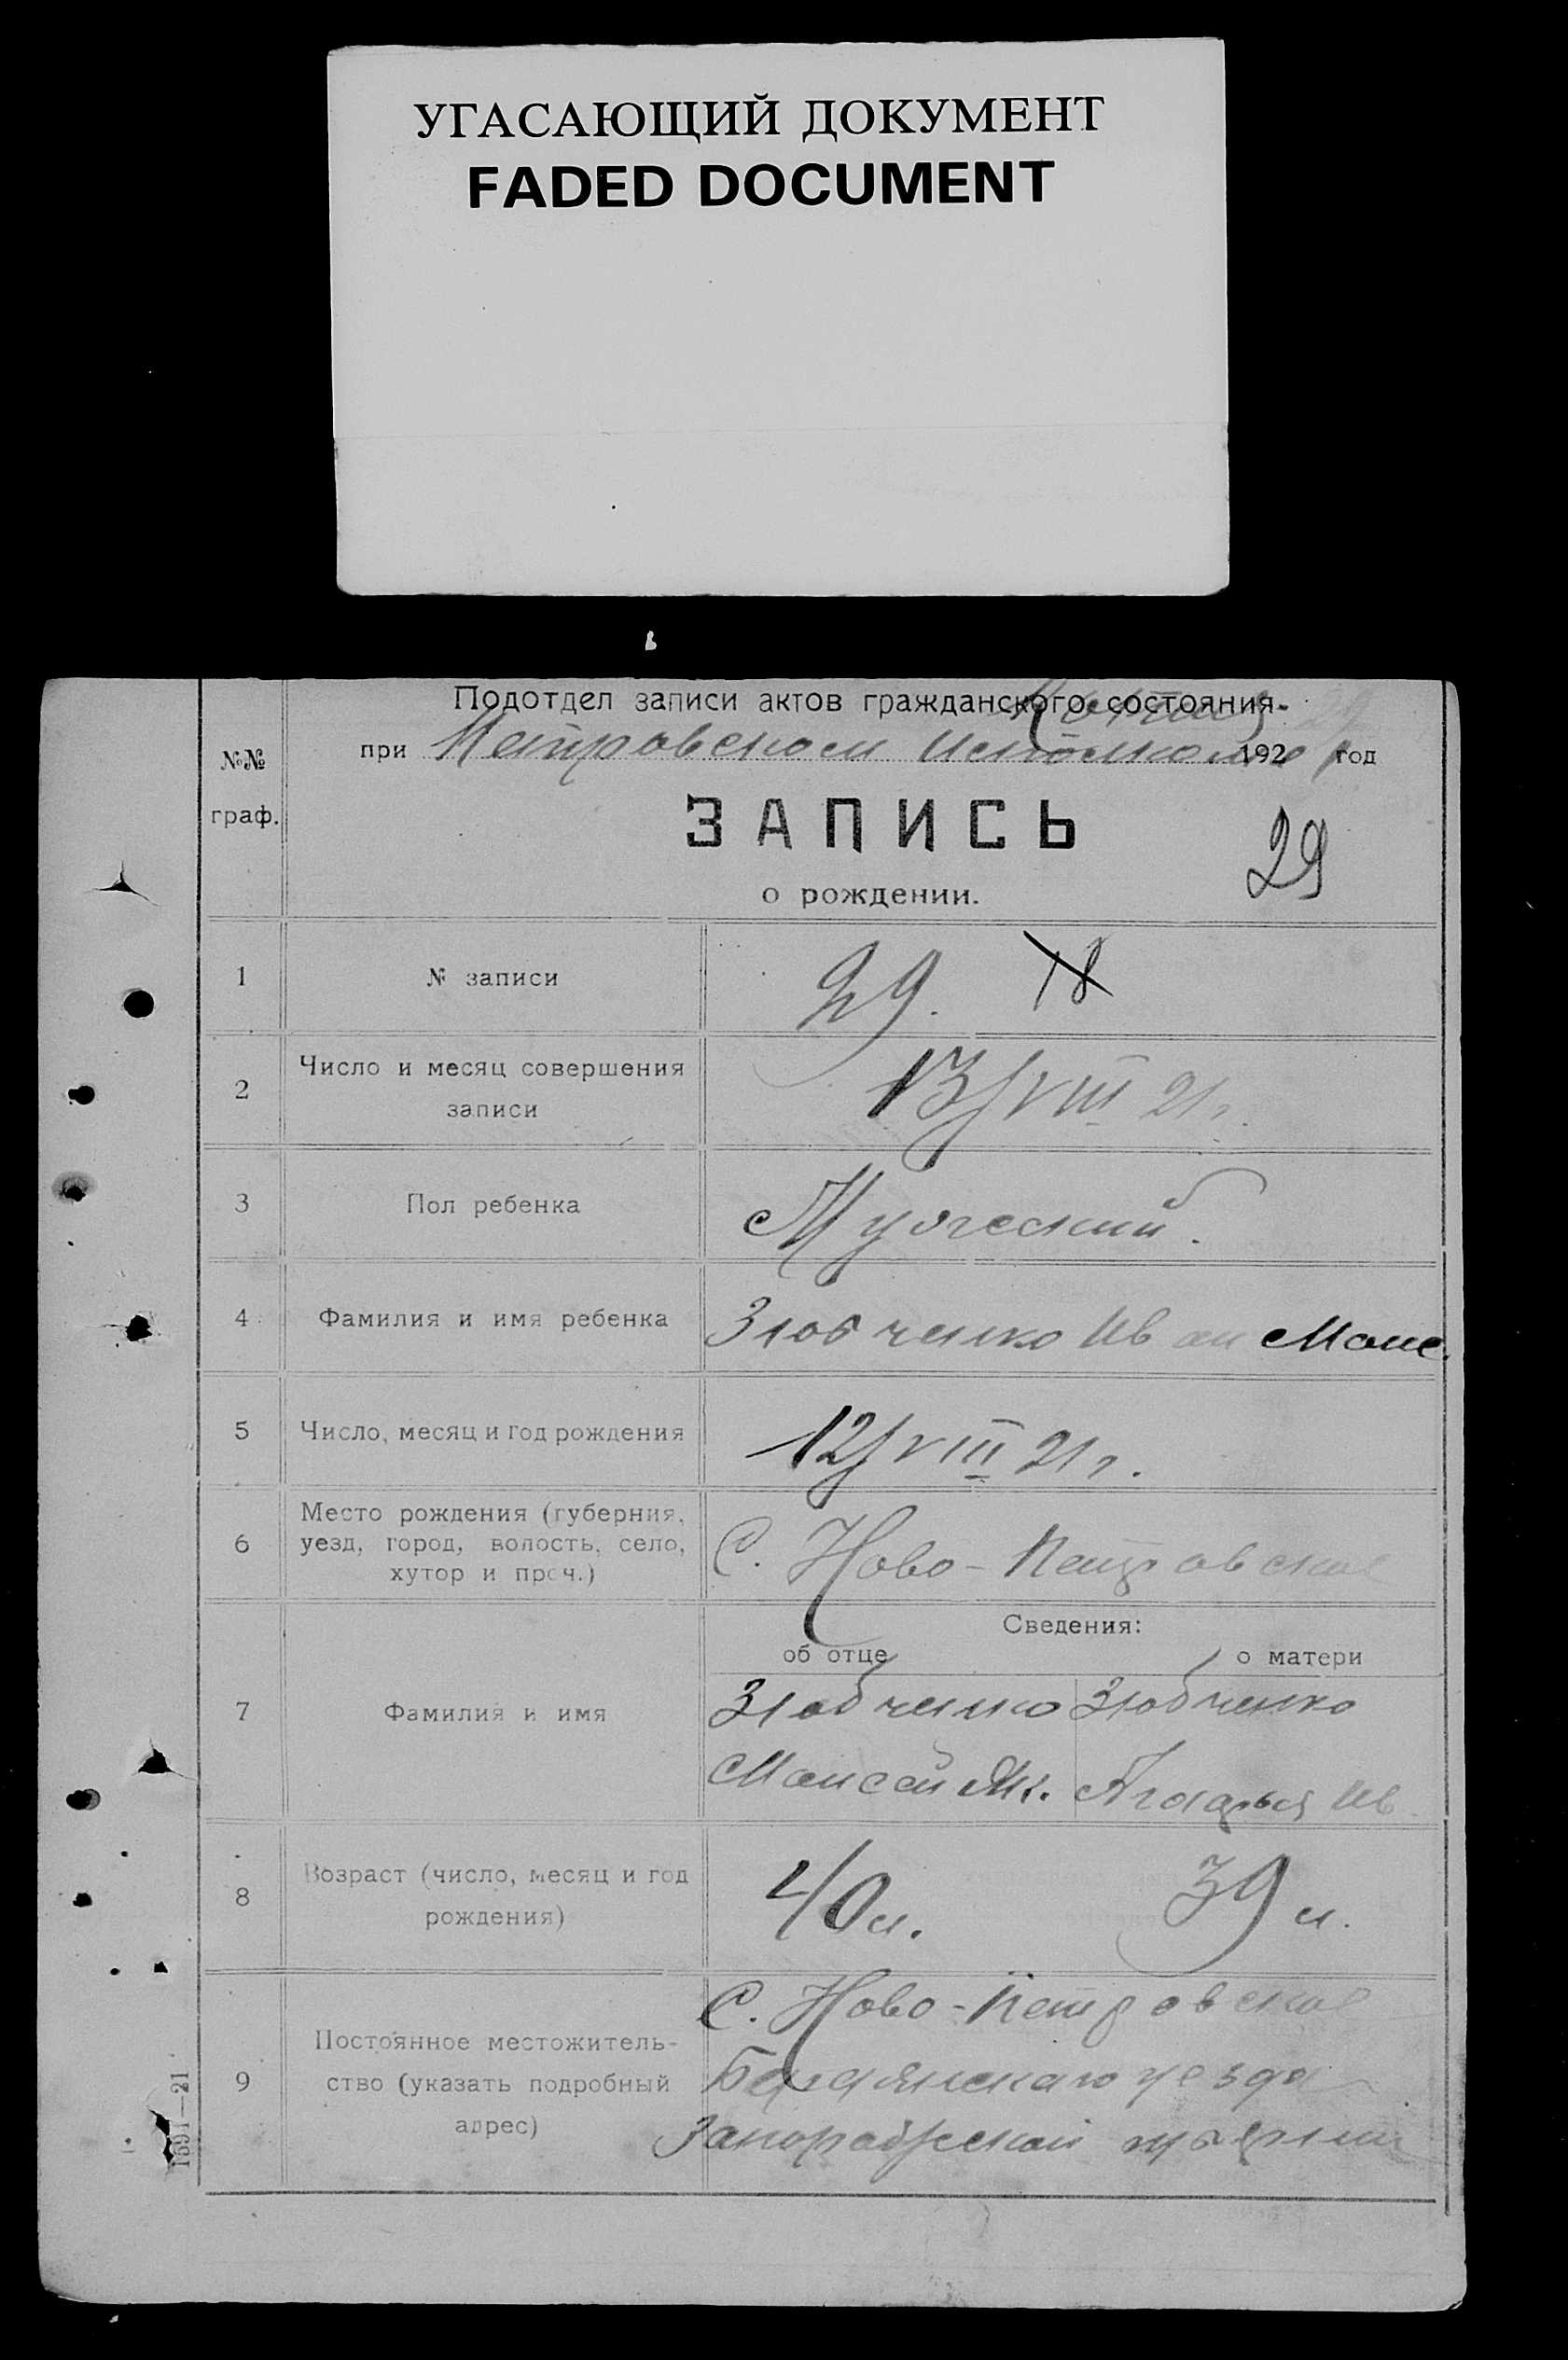 УГАСАЮЩИЙ ДОКУМЕНТ
FADED DOCUMENT
Подотдел записи актов гражданского состояния-
при Петровском Исполкоме 1921 год
№№ граф.
ЗАПИСЬ
29
о рождении.
1 № записи 29. 18
2 Число и месяц совершения записи 13/VIII 21 г.
3 Пол ребенка Мужеский.
4 Фамилия и имя ребенка Зюбченко Иван Моис.
5 Число, месяц и год рождения 12/VIII 21 г.
6 Место рождения (губерния, уезд, город, волость, село, хутор и проч.) С. Ново-Петровское
Сведения:
об отце о матери
7 Фамилия и имя Зюбченко Зюбченко
Моисей Як. Ив.
8 Возраст (число, месяц и год рождения) 40 л. 39 л.
9 Постоянное местожительство (указать подробный адрес) С. Ново-Петровское
Бердянскаго уезда
Запорожской губернии
1691—21